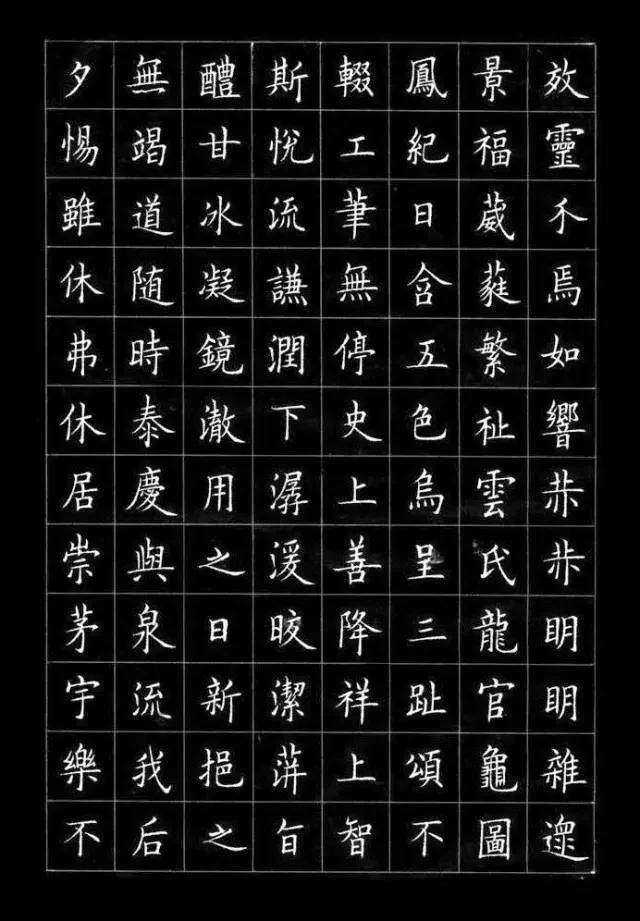 效靈介焉如響赫赫眀眀雜遝
景福葳蕤繁祉雲氏龍官龜圖
鳳紀日含五色烏呈三趾頌不
輟工筆無停史上善降祥上智
斯悅流謙潤下潺湲晈潔蓱旨
醴甘冰凝鏡澈用之日新挹之
無竭道随時泰慶與泉流我后
夕惕雖休弗休居崇茅宇樂不